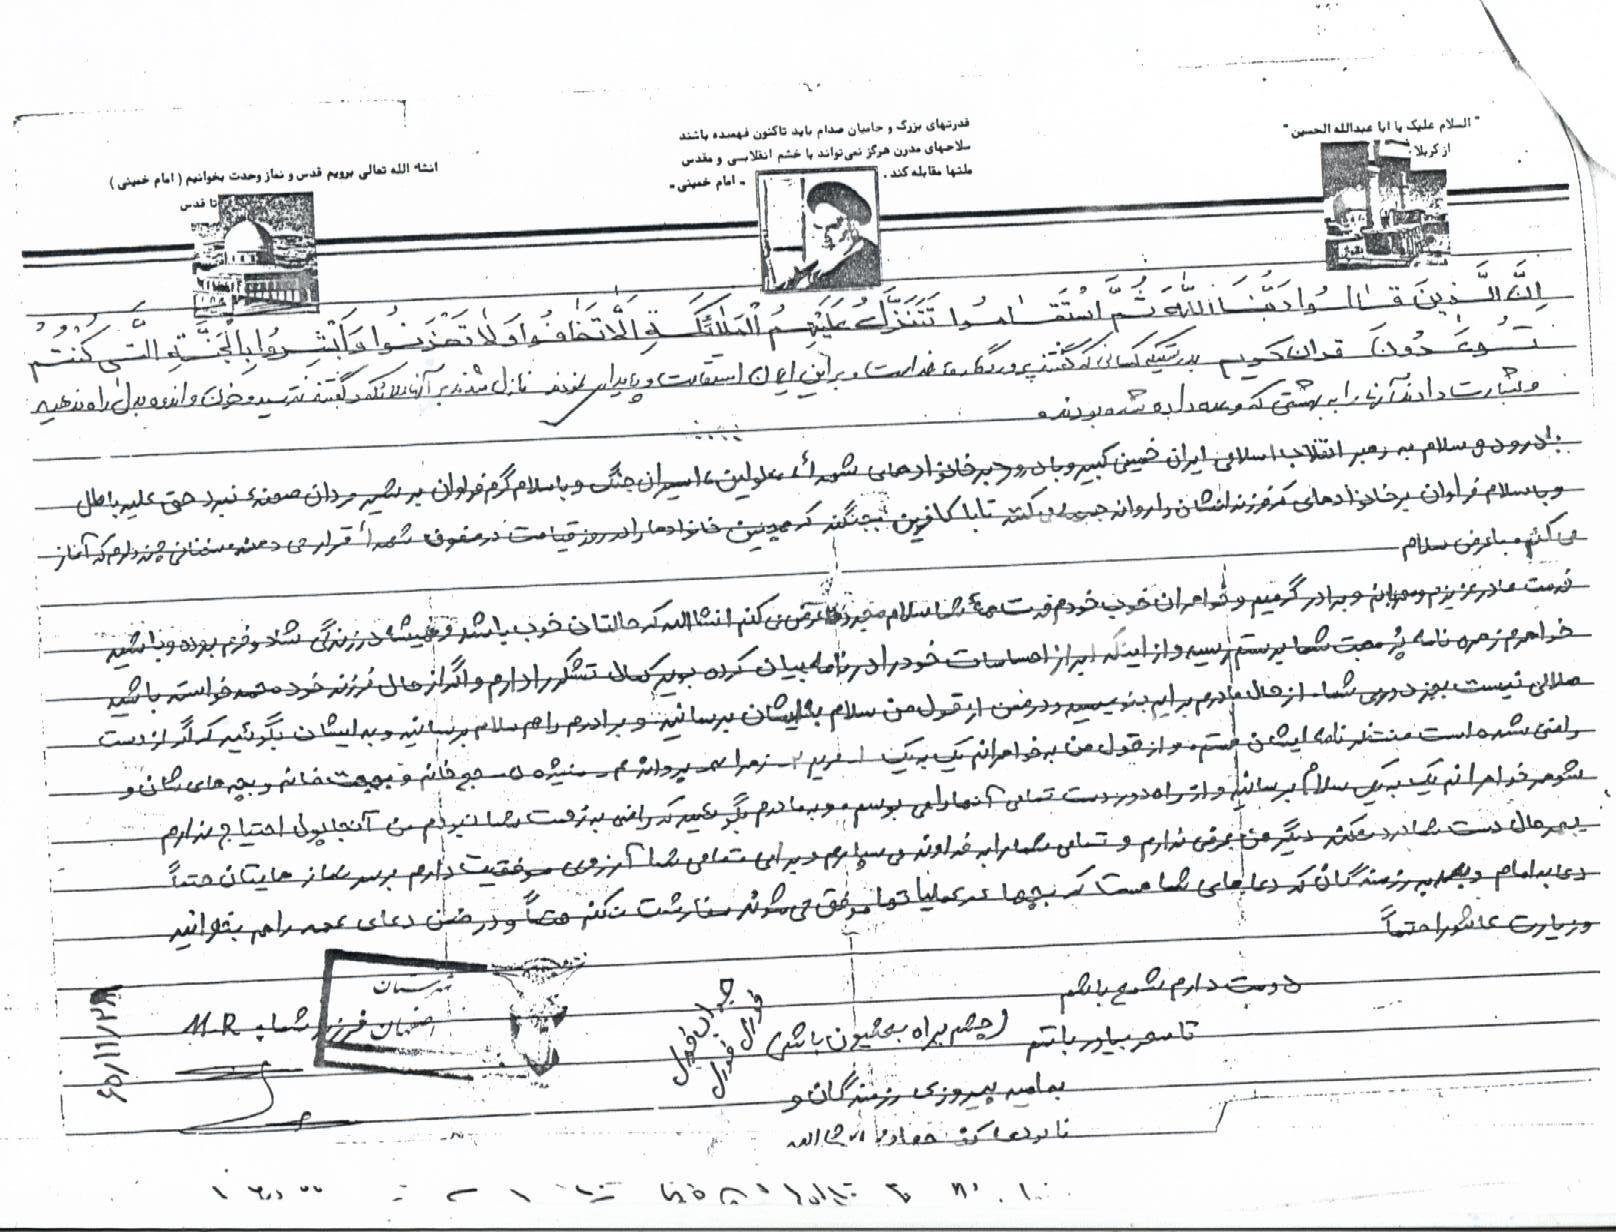 "السلام علیک یا ابا عبدالله الحسین"
از کربلا
قدرتهای بزرگ و حامیان صدام باید تاکنون فهمیده باشند
سلاحهای مدرن هرگز نمی‌تواند با خشم انقلابی و مقدس
ملتها مقابله کند. - امام خمینی -
انشاء الله تعالی برویم قدس و نماز وحدت بخوانیم (امام خمینی)
تا قدس
اِنَّ الَّذینَ قالُوا رَبُّنَا اللّهُ ثُمَّ اسْتَقامُوا تَتَنَزَّلُ عَلَیْهِمُ الْمَلائِکَةِ اَلّا تَخافُوا وَلا تَحْزَنُوا وَاَبْشِرُوا بِالْجَنَّةِ الَّتی کُنْتُمْ
تُوعَدُونَ قرآن کریم بدرستیکه کسانی که گفتند پروردگار ما خداست و بر این ایمان استقامت و پایداری نمودند نازل شدند بر آنها ملائکه و گفتند نترسید و حزن و اندوه بدل راه ندهید
و بشارت دادند آنها را به بهشتی که وعده داده شده بودند
با درود و سلام به رهبر انقلاب اسلامی ایران خمینی کبیر و با درود بر خانواده‌های شهدا، معلولین، اسیران جنگ و با سلام گرم فراوان بر شیر مردان صحنه نبرد حق علیه باطل
و با سلام فراوان بر خانوادهای که فرزندانشان را روانه جبهه می کنند تا با کافرین بجنگند که همچنین خانوادها را در روز قیامت در صفوف شهدا قرار می دهند سخنانی چند دارم که آغاز
می کنم با عرض سلام
خدمت مادر عزیزم و مهربانم و برادر گرمیم و خواهران خوب خودم خدمت همهٔ شما سلام عرض می کنم انشاالله که حالتان خوب باشد و همیشه در زندگی شاد و خرم بوده و باشید
خواهرم زهره نامه پُر محبت شما بدستم رسید و از اینکه ابراز احساسات خود را در نامه بیان کرده بودید کمال تشکر را دارم و اگر از حال فرزند خود محمد خواسته باشید
ملالی نیست بجز دوری شما. از حال مادرم برایم بنویسید و در ضمن از قول من سلام به ایشان برسانید و برادرم را هم سلام برسانید و به ایشان بگوئید که اگر از دست
راضی شده است منتظر نامه ایشان هستم و از قول من به خواهرانم یک به یک ۱- مریم ۲- زهرا ۳- پروانه ۴- منیژه ۵- خانم و بهجت خانم و بچه های شان و
شوهر خواهرانم یک به یک سلام برسانید و از راه دور دست تمامی آنها را می بوسم و به مادرم بگوئید که راضی به زحمت شما نبودم من آنجا پول احتیاج ندارم
بهرحال دست شما درد نکند دیگر من عرضی ندارم و تمامی شما را به خداوند می سپارم و برای تمامی شما آرزوی موفقیت دارم بر سر نماز هایتان حتماً
دعا به امام و بعد به رزمندگان که دعاهای شما هست که بچه‌ها در عملیاتها موفق می شوند سفارشت نکنم حتماً و در ضمن دعای عهد را هم بخوانید
و زیارت عاشورا حتماً
دوست دارم شمع باشم
تا سحر بیدار باشم
(چشم براه بمتیون باشم)
جواب فوری
فوری فوری
به امید پیروزی رزمندگان و
نابودی انشاالله
شهرستان
اصفهان
فرزند شما M.R
۶۵/۱۱/۲۸